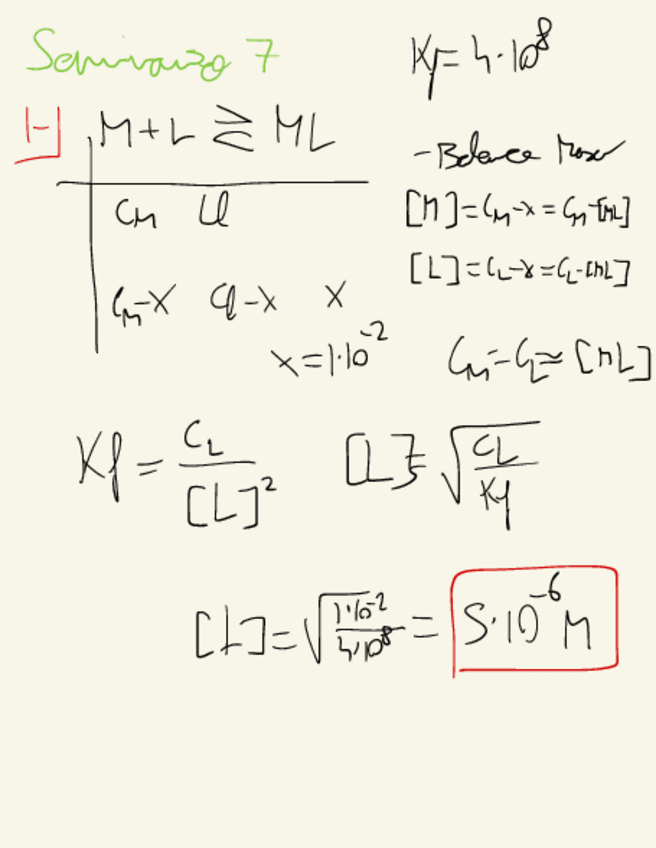 Seminario 7
Kf = 4·10⁸
1-
M + L ⇄ ML
CM CL
CM-x CL-x x
x = 1·10⁻²
- Balance Masas
[M] = CM-x = CM-[ML]
[L] = CL-x = CL-[ML]
CM = CL ≈ [ML]
Kf = CL / [L]² [L] = √(CL / Kf)
[L] = √(1·10⁻² / 4·10⁸) = 5·10⁻⁶ M